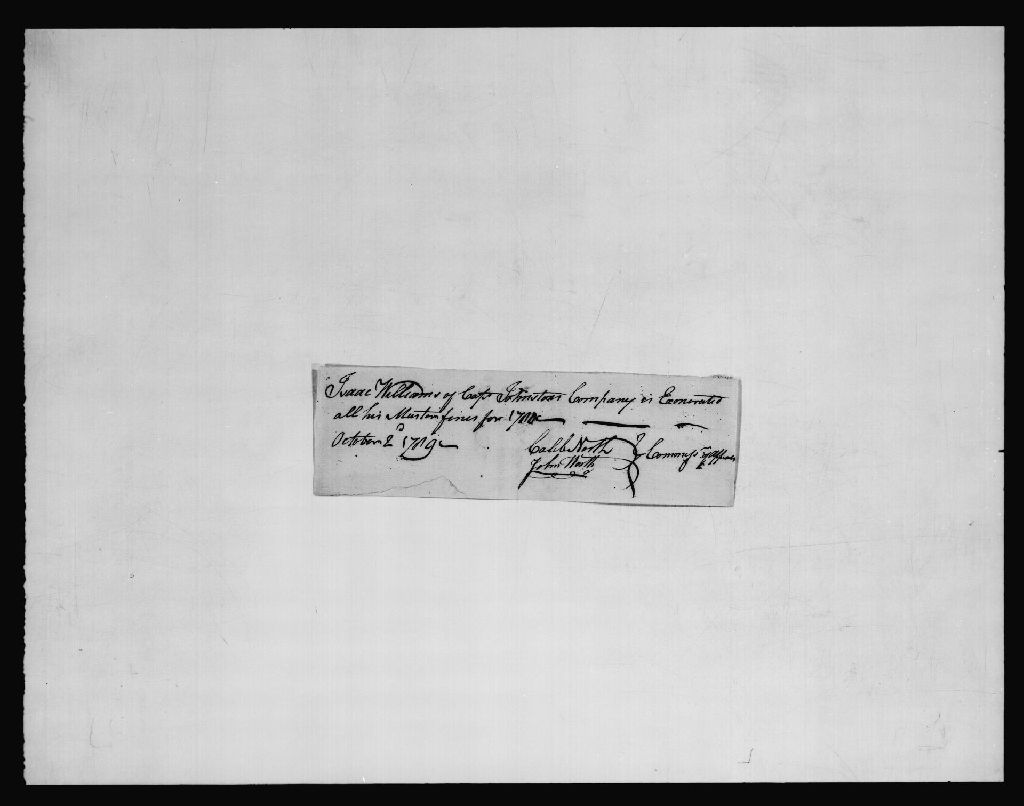 Isaac Williams of Capt Johnstons Company is Exonerated
all his Muster fines for
October 2d 1789
Caleb North
John Worth
Commiss of Appeals